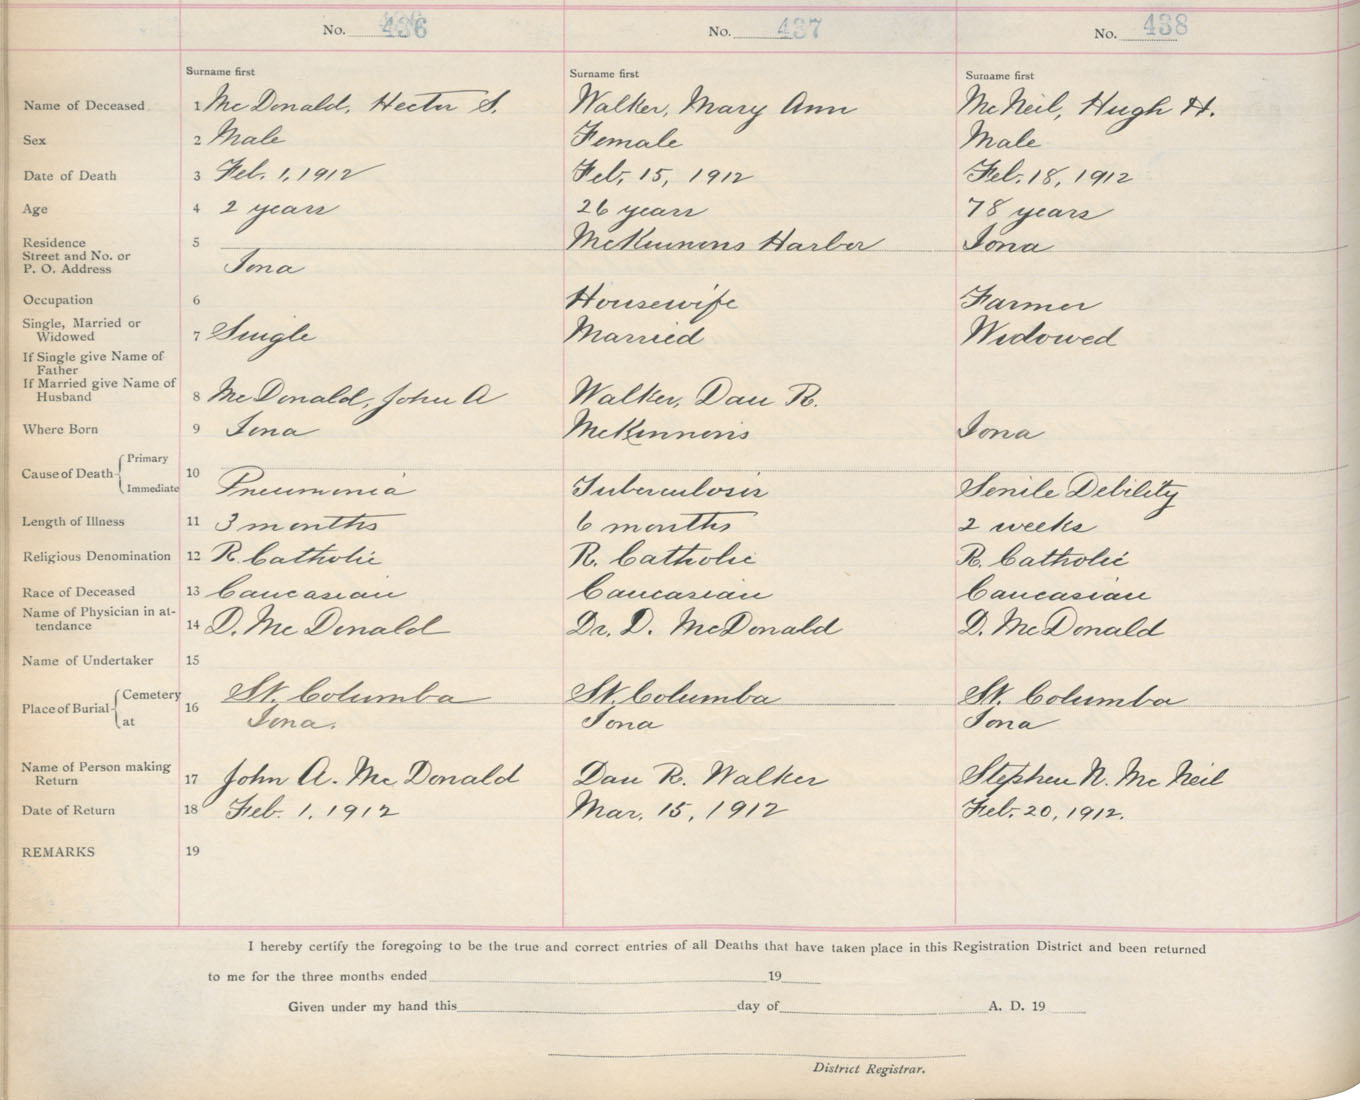 No. 436 No. 437 No. 438
Surname first Surname first Surname first
Name of Deceased 1 McDonald, Hector S. Walker, Mary Ann McNeil, Hugh H.
Sex 2 Male Female Male
Date of Death 3 Feb. 1, 1912 Feb. 15, 1912 Feb. 18, 1912
Age 4 2 years 26 years 78 years
Residence 5 McKinnons Harbor Iona
Street and No. or
P. O. Address Iona
Occupation 6 Housewife Farmer
Single, Married or
Widowed 7 Single Married Widowed
If Single give Name of
Father
If Married give Name of
Husband 8 McDonald, John A Walker, Dan R.
Where Born 9 Iona McKinnons Iona
Cause of Death Primary
10
Immediate Pneumonia Tuberculosis Senile Debility
Length of Illness 11 3 months 6 months 2 weeks
Religious Denomination 12 R. Catholic R. Catholic R. Catholic
Race of Deceased 13 Caucasian Caucasian Caucasian
Name of Physician in at-
tendance 14 D. McDonald Dr. D. McDonald D. McDonald
Name of Undertaker 15
Place of Burial Cemetery 16 St. Columba St. Columba St. Columba
at Iona. Iona Iona
Name of Person making
Return 17 John A. McDonald Dan R. Walker Stephen N. McNeil
Date of Return 18 Feb. 1, 1912 Mar. 15, 1912 Feb. 20, 1912.
REMARKS 19
I hereby certify the foregoing to be the true and correct entries of all Deaths that have taken place in this Registration District and been returned
to me for the three months ended 19
Given under my hand this day of A. D. 19
District Registrar.